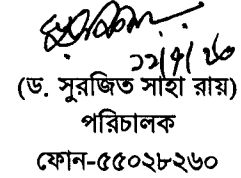 (ড. সুরজিত সাহা রায়)
পরিচালক
ফোন-৫৫০২৮২৬০